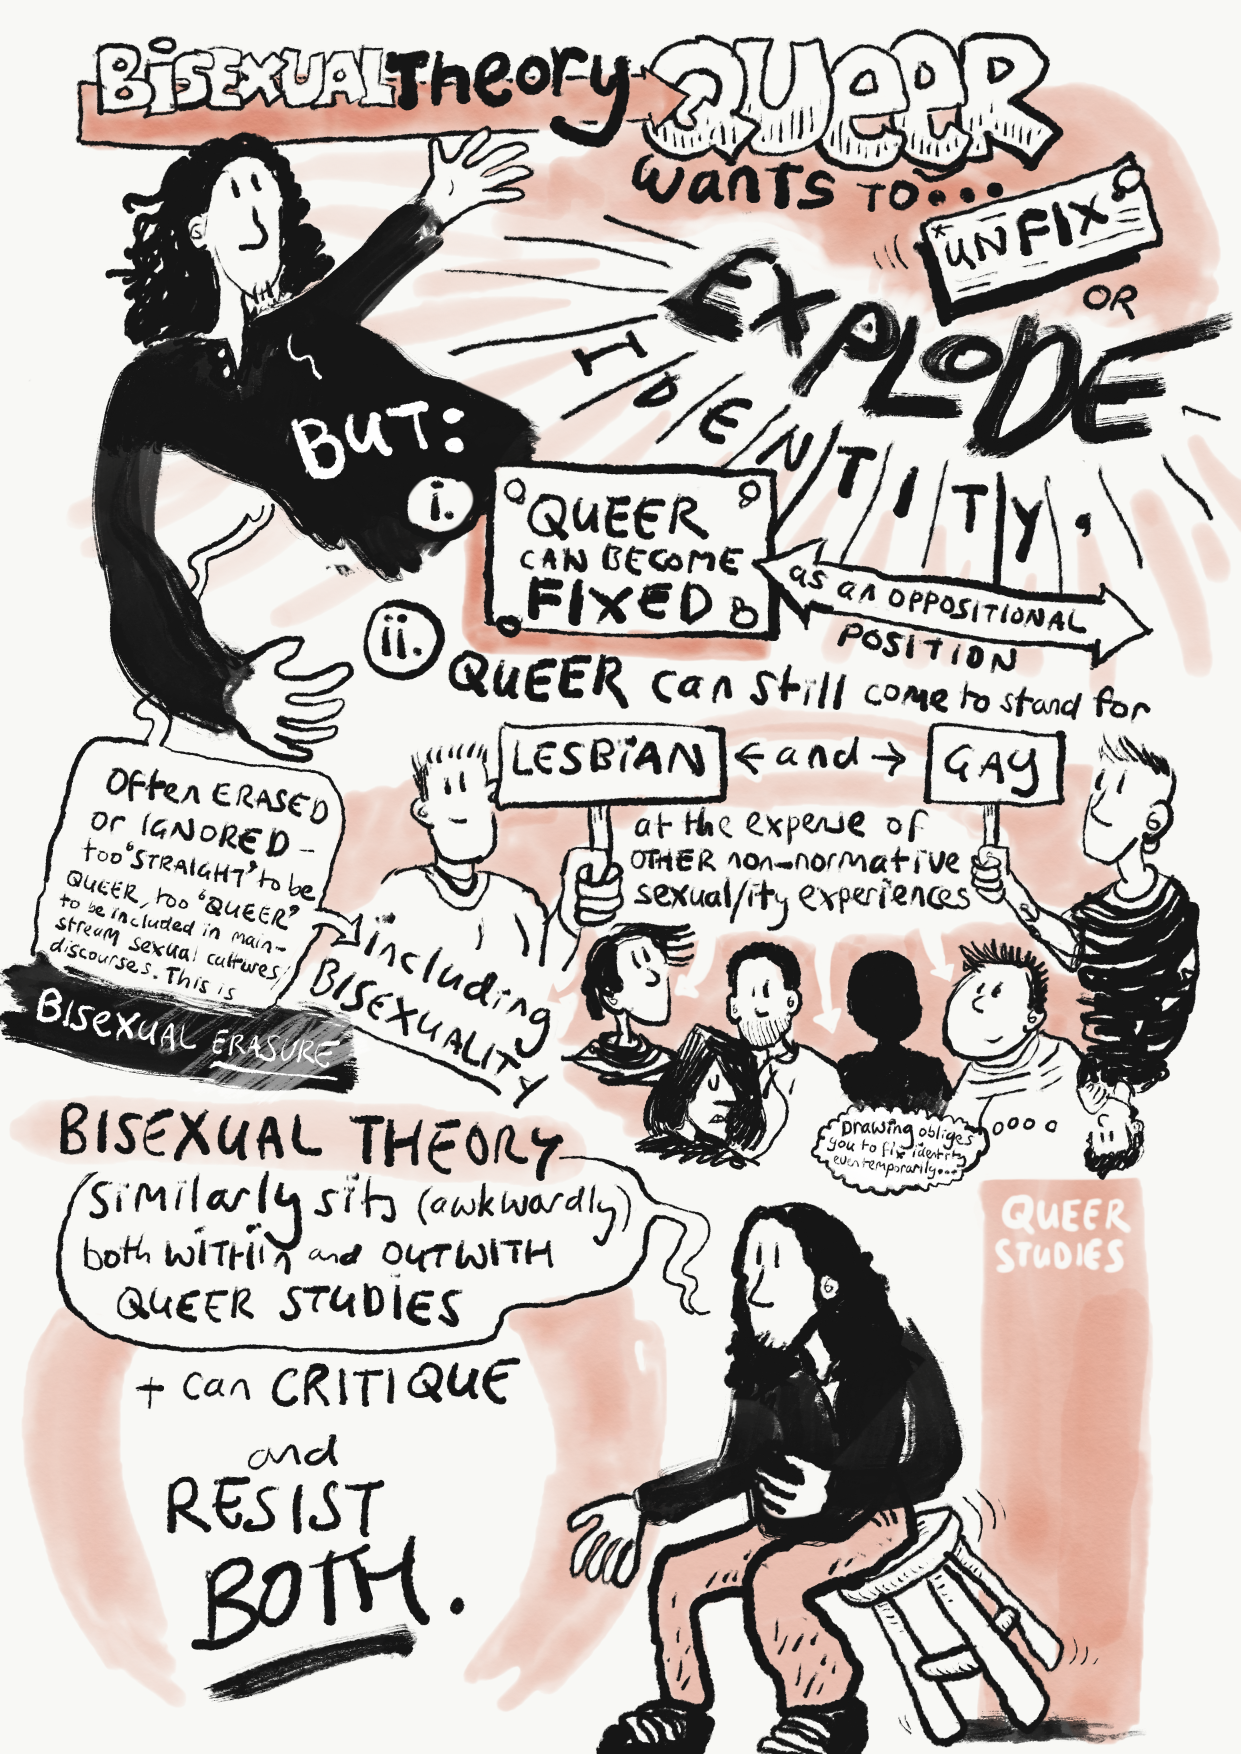 BiSEXUAL Theory QUeeR
wants To...
UNFIX
OR
EXPLODE
IDENTITY,
BUT:
i.
QUEER
CAN BECOME
FIXED
as an OPPOSITIONAL
POSITION
ii. QUEER can still come to stand for
LESBiAN ← and → GAY
at the expense of
OTHER non-normative
sexual/ity experiences
including
BISEXUALITY
Often ERASED
or IGNORED -
too 'STRAIGHT' to be
QUEER, too 'QUEER'
to be included in main-
stream sexual cultures/
discourses. This is
BiSeXUAL ERASURE
Drawing obliges
you to fix identity
even temporarily...
BISEXUAL THEORY
similarly sits (awkwardly)
both WiTHin and OUTWITH
QUEER STUDiES
+ can CRITIQUE
and
RESIST
BOTH.
QUEER
STUDIES